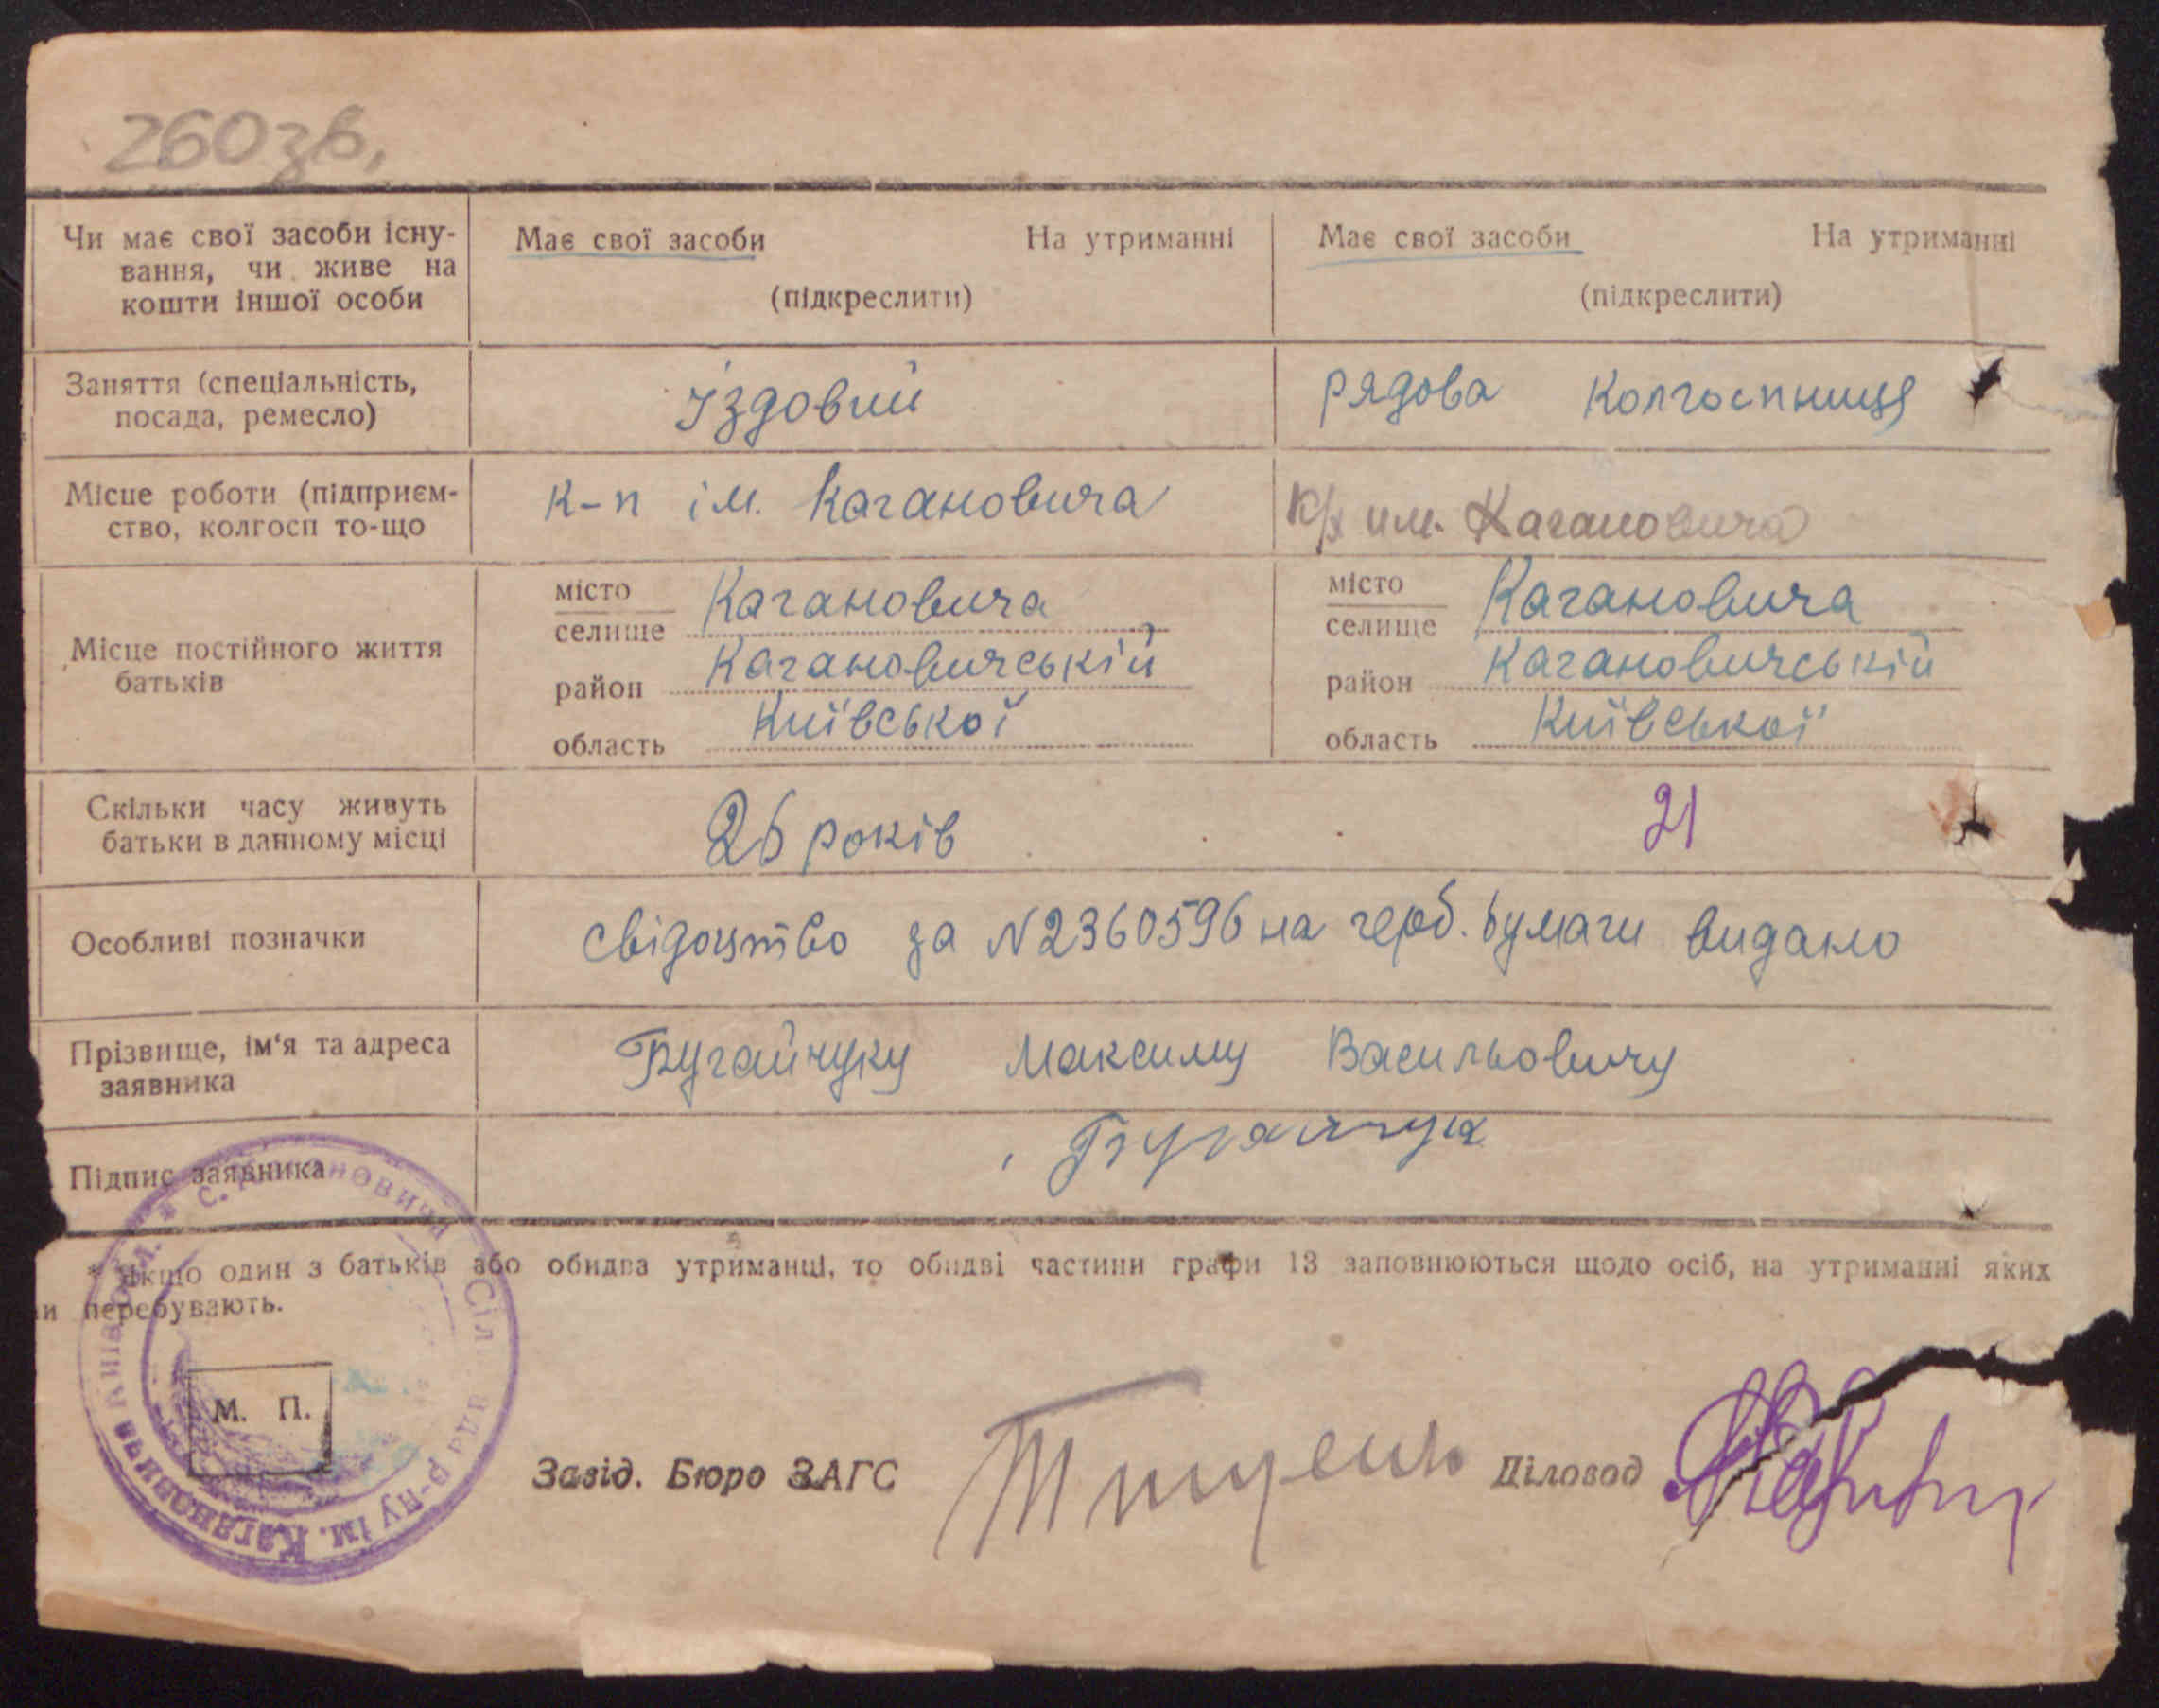 260 зв.
Чи має свої засоби існу-
вання, чи живе на
кошти іншої особи
Має свої засоби На утриманні
(підкреслити)
Має свої засоби На утриманні
(підкреслити)
Заняття (спеціальність,
посада, ремесло)
їздовий
рядова колгоспниця
Місце роботи (підприєм-
ство, колгосп то-що
к-п ім. Кагановича
к/х им. Кагановича
Місце постійного життя
батьків
місто
селище Кагановича
район Кагановичській
область Київської
місто
селище Кагановича
район Кагановичській
область Київської
Скільки часу живуть
батьки в данному місці
26 років
21
Особливі позначки
свідоцтво за N2360596 на герб. бумаги видано
Прізвище, ім'я та адреса
заявника
Бугайчуку Максиму Васильовичу
Підпис заявника
Бугайчук
* Якщо один з батьків або обидва утриманці, то обидві частини графи 13 заповнюються щодо осіб, на утриманні яких
и перебувають.
М. П.
Завід. Бюро ЗАГС
Діловод
р-ну ім. Кагановича